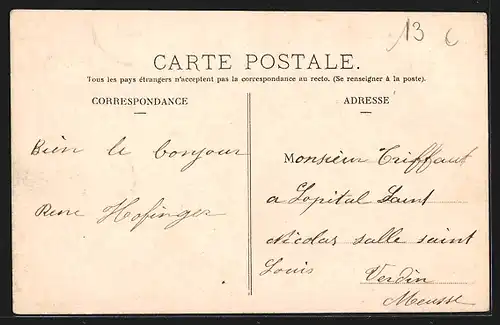 13 6
CARTE POSTALE.
Tous les pays étrangers n'acceptent pas la correspondance au recto. (Se renseigner à la poste).
CORRESPONDANCE
ADRESSE
Bien le bonjour
Rene Hofinger
Monsieur Triffaut
a Lopital Saint
Nicolas salle saint
Louis
Verdin
Meusse